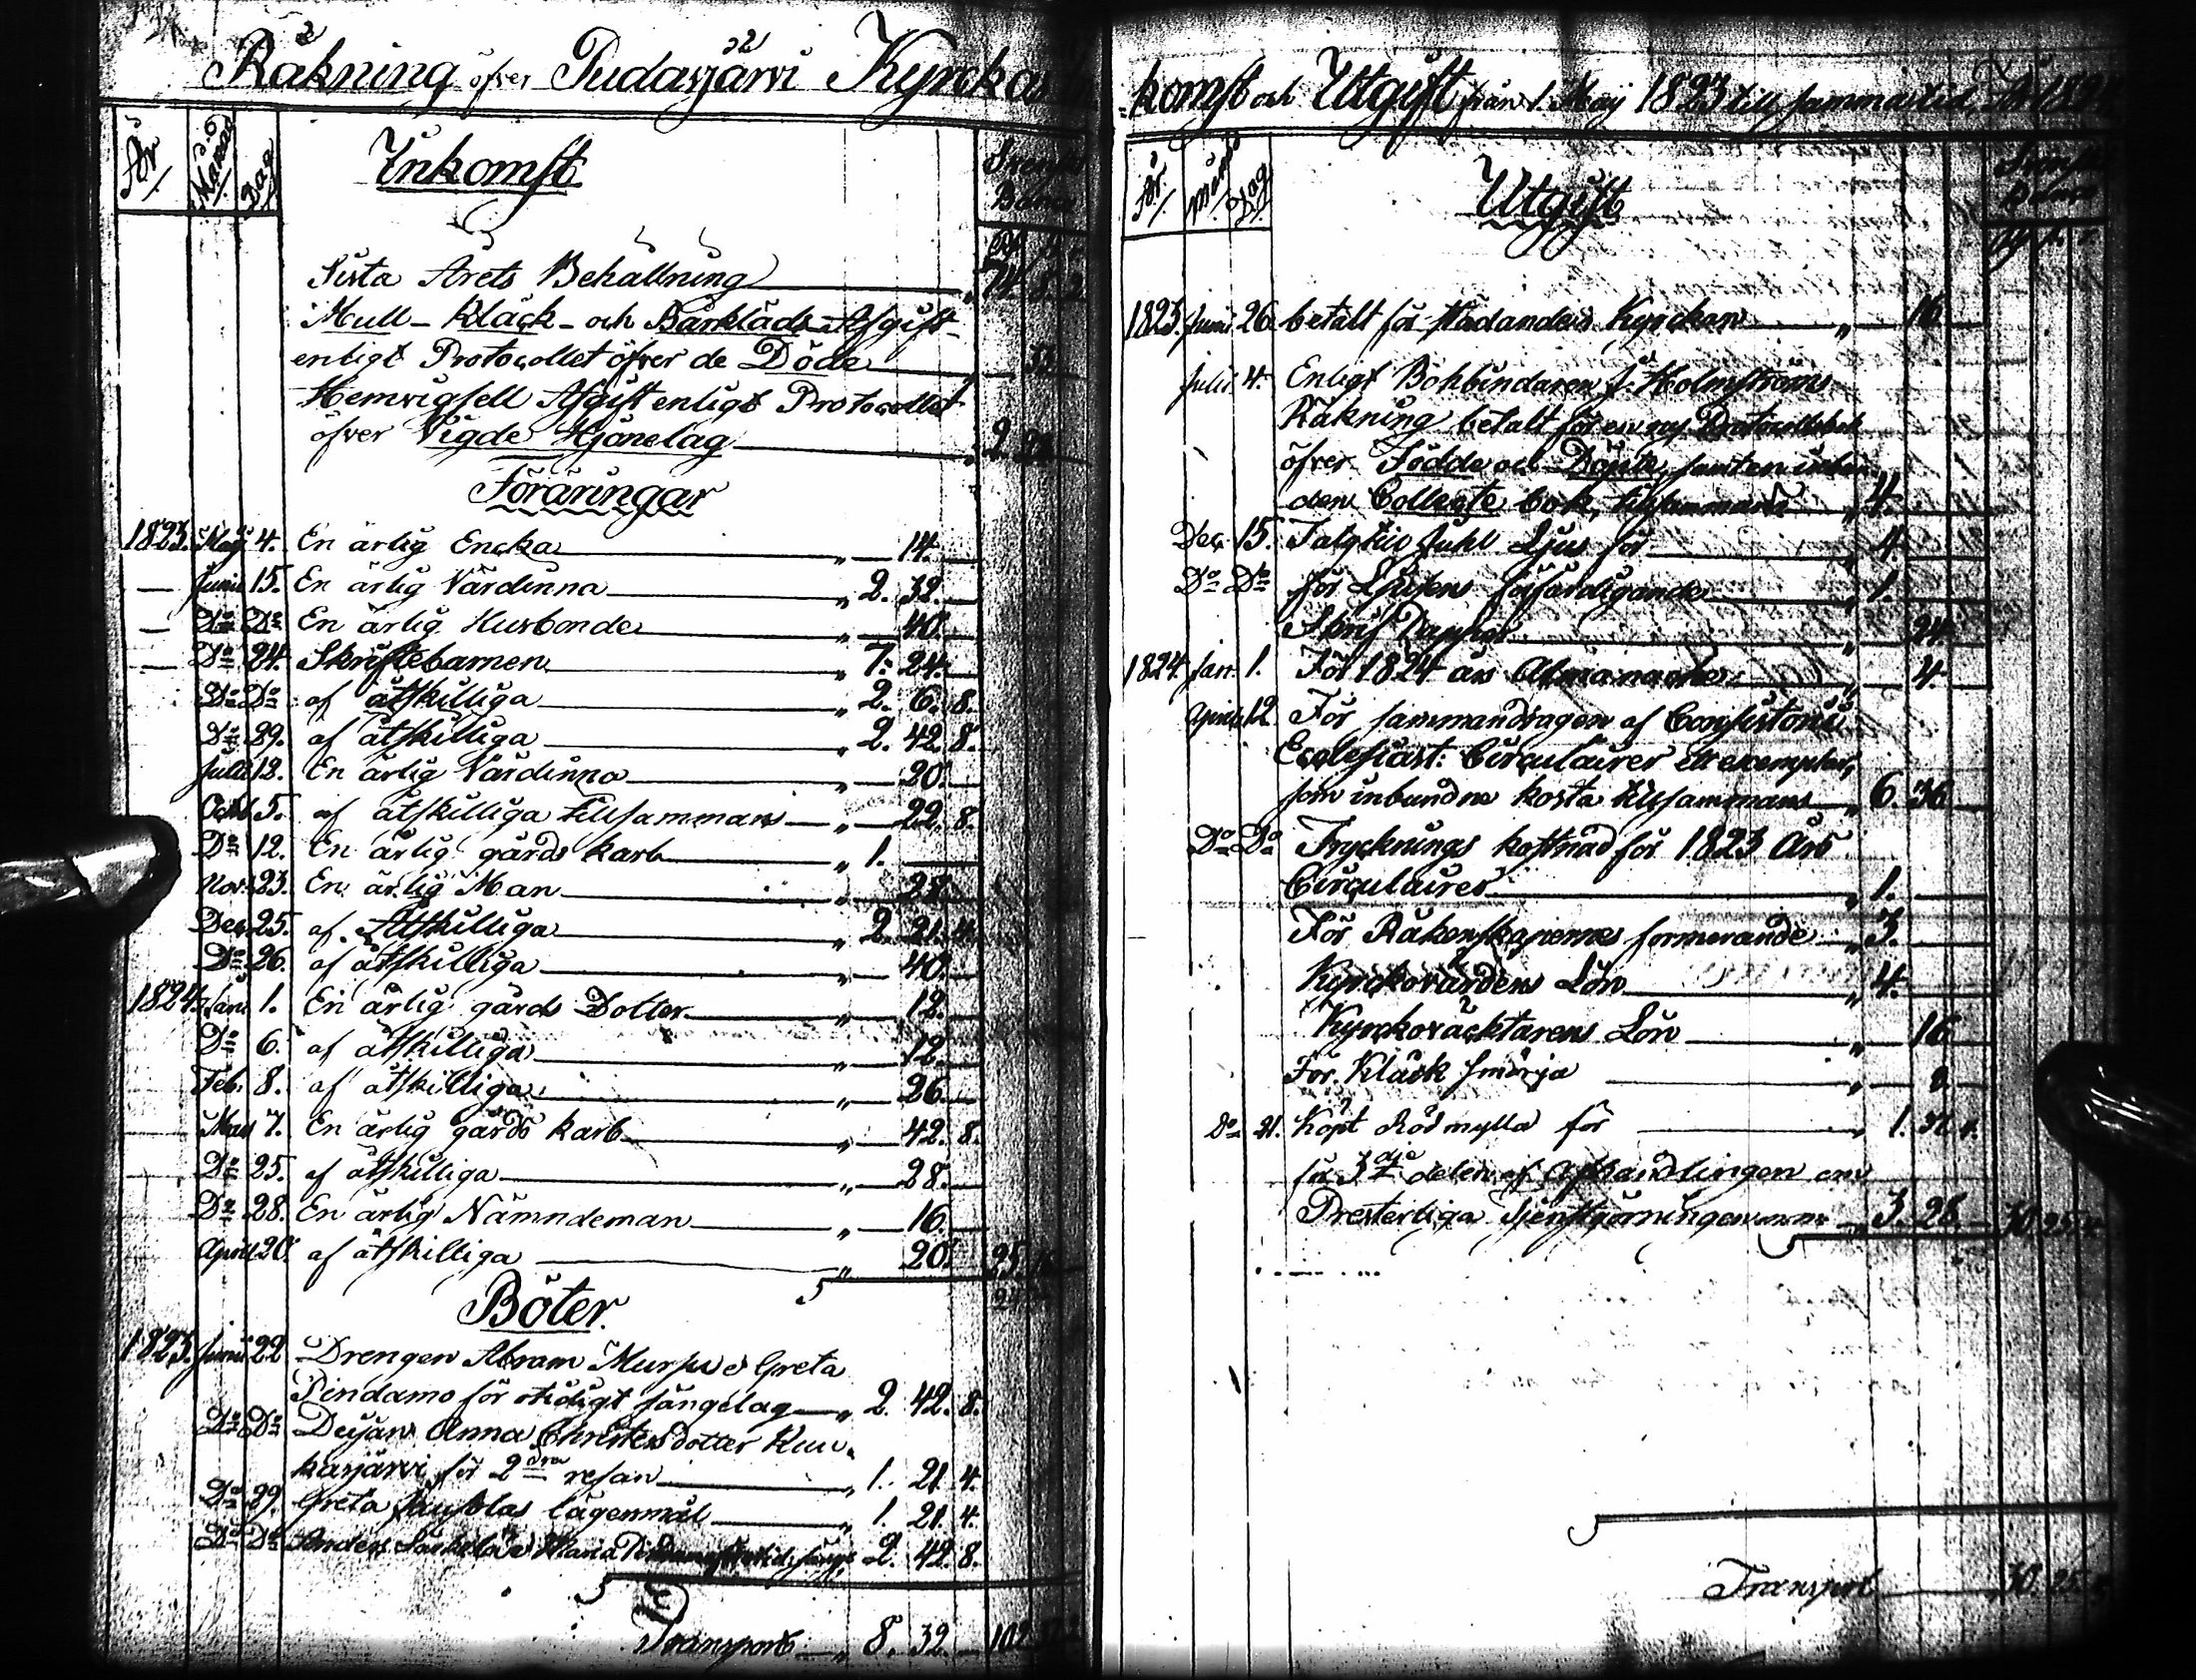 Räkning öfver Pudasjärvi Kyrcka
År Månad Dag Inkomst
Sista Årets Behållning
Mull- Kläck- och Bårkläds Afgift
enligt Protocollet öfver de Döde 53.
Hemvigsell Afgift enligt Protocollet
öfver Vigde Hjonelag 2.
Föräringar
1823. Maij 4. En ärlig Encka „ 14.
— Junii 15. En ärlig Värdinna „ 2. 32.
— Do Do En ärlig Husbonde „ 40.
— Do 24. Skriftebarnen „ 7. 24.
Do Do af åtskilliga „ 2. 6. 8.
Do 29. af åtskilliga „ 2. 42. 8.
Julii 12. En ärlig Värdinna „ 20.
Octob 5. af åtskilliga tillsammans „ 22. 8.
Do 12. En ärlig gårds karl „ 1.
Nov. 23. En ärlig Man „ 28.
Dec. 25. af Åtskilliga „ 2. 21. 4.
Do 26. af åtskilliga „ 40.
1824. Jan. 1. En ärlig gårds Dotter „ 12.
Do 6. af åtskilliga „ 12.
Feb. 8. af åtskilliga „ 26.
Mars 7. En ärlig gårds karl „ 42. 8.
Do 25. af åtskilliga „ 28.
Do 28. En ärlig Nämndeman „ 16.
April 20. af åtskilliga „ 20. 25.
Böter.
1823. Junii 22 Drengen Abram Mursu o Greta
Pindamo för otidigt sängelag „ 2. 42. 8.
Do Do Deijan Anna Christersdotter Kuu-
kasjärvi för 2dra resan „ 1. 21. 4.
Do 29. Greta lägersmål „ 1. 21. 4.
Do Do Anders Särkelä o Maria 2. 42. 8.
Transport „ 8. 32. 102.
komst och Utgift från 1 Maij 1823 till samma tid År 1824
År. Månad Dag Utgift
1823. Junii 26. betalt för städandet i Kyrckan „ 16
Julii 4. Enligt Bokbindaren J. Holmströms
Räkning betalt för en ny Protocollsbok
öfver Födde och Döpte, samt en inbun-
den Collecte bok, tillsammans „ 4.
Dec. 15. Talg till Juhl Ljus för „ 4.
Do Do för Ljusens förfärdigande „ 1.
Skrif Papper „ 24.
1824. Jan. 1. För 1824 års Almanacka „ 4.
Aprill 12. För sammandragen af Consistorii
Ecclesiast: Circulairer ett exemplar,
som inbundne kosta tillsammans „ 6. 36
Do Do Trycknings kostnad för 1823 Års
Circulairer „ 1.
För Räkenskapernes formerande „ 3.
Kyrckovärdens Lön „ 4.
Kyrckoväcktarens Lön „ 16
För Kläck smörja „ 8
Do 21. Köpt Rödmylla för „ 1.
för 3dje delen af Afhandlingen om
Presterliga Tjenstgöringen m m „ 3. 28. 30. 25.
Transport 30. 25.